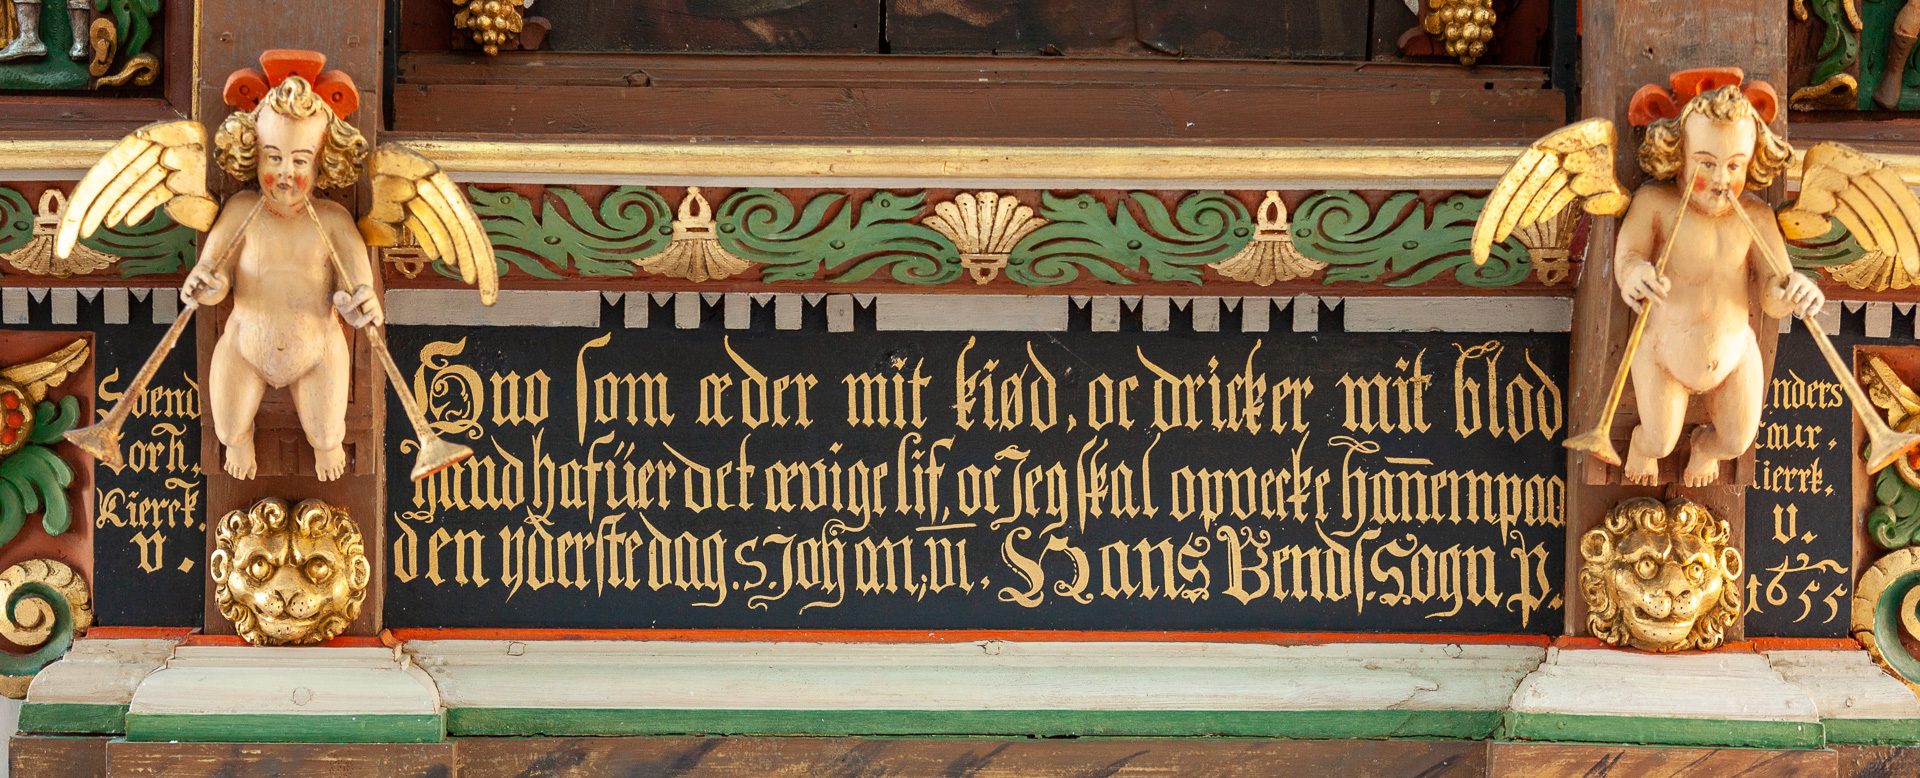 Svend
Lorh.
Kierck.
V.
Huo som æder mit kiød, oc dricker mit blod
hand hafüer det ævige lif, oc Jeg skal opvecke hañem paa
den yderste dag. S. Johan; VI. Hans Bends. Sogn P.
Anders
Laur.
Kierrk.
V.
1655